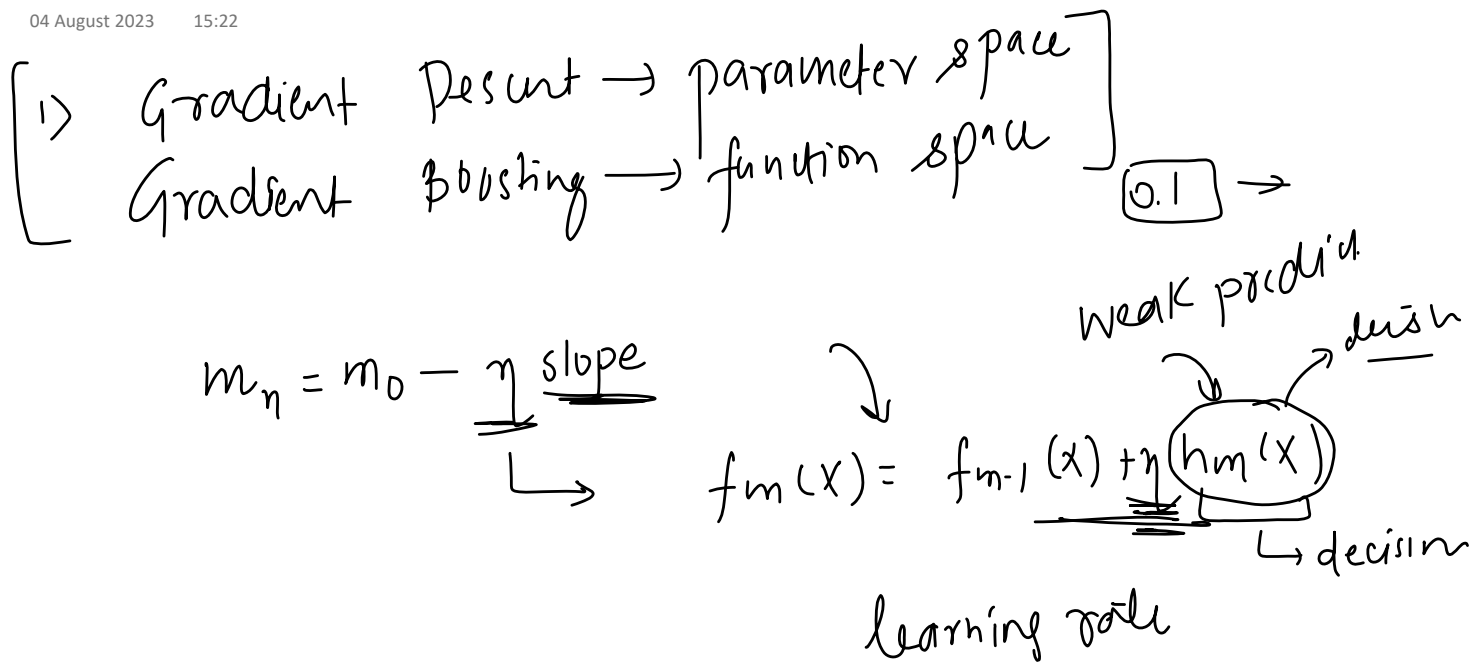 04 August 2023 15:22
1) Gradient Descent → parameter space
Gradient Boosting → function space
0.1 →
weak predict
m_n = m_0 − η slope
decisn
f_m(x) = f_{m-1}(x) + η h_m(x)
↳ decision
learning rate